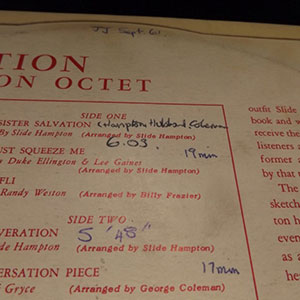 JJ Sept. 61.
TION
ON OCTET
SIDE ONE
SISTER SALVATION Champton Hubbard Coleman
By Slide Hampton (Arranged by Slide Hampton)
6.03
UST SQUEEZE ME 19 min
Duke Ellington & Lee Gaines (Arranged by Slide Hampton)
FLI
Randy Weston (Arranged by Billy Frazier)
SIDE TWO
VERATION 5 "48"
de Hampton (Arranged by Slide Hampton)
ERSATION PIECE 17 min
i Gryce (Arranged by George Coleman)
outfit Slide
book and w
receive the
listeners a
former
by that
The
sketch
ton
even
as
h